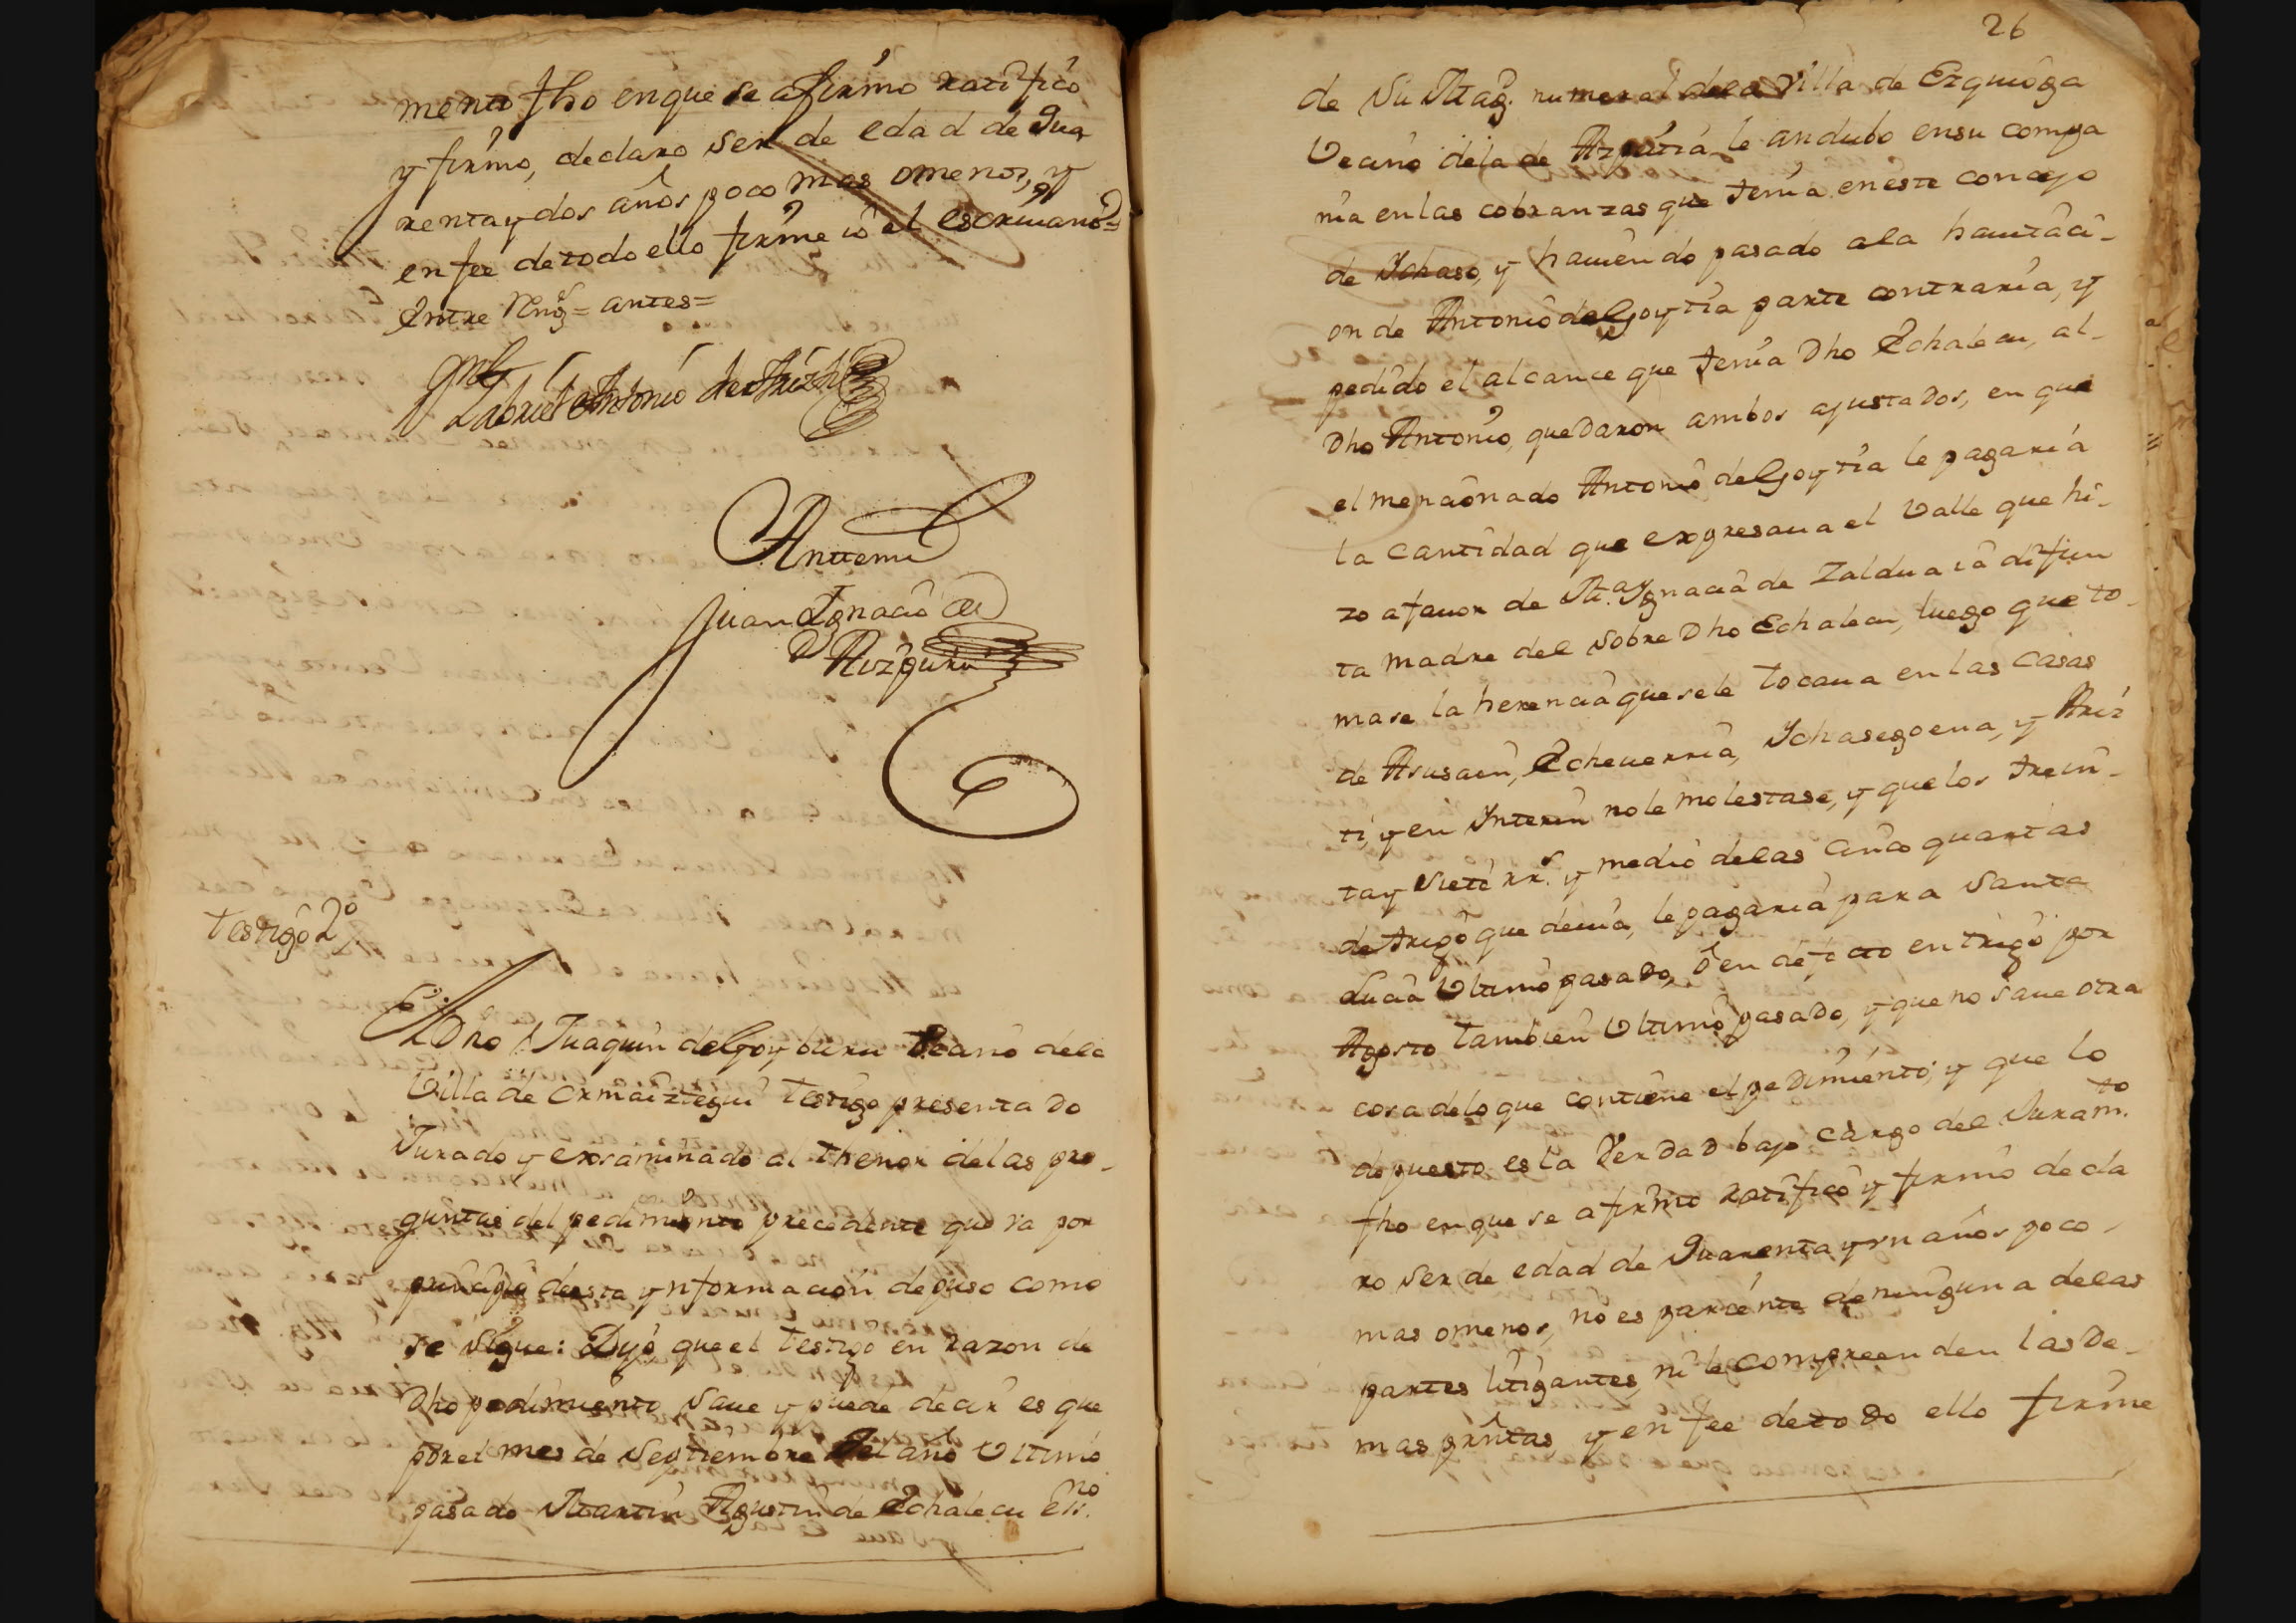 mento fho en que se afirmo ratifico
y firmo, declaro ser de edad de qua
renta y dos años poco mas omenos, y
en fee de todo ello firme io el escriuano=
Entre Rengs= antes=
Gabriel Antonio de Ariz
Antemi
Juan Ignacio de
Aizpuru
Testigo 2º
El Dho Juaquin de Goyburu Vecino dela
Villa de Ormaiztegui testigo presentado
Jurado y exsaminado al thenor delas pre-
guntas del pedimiento precedente que va por
principio desta ynformacion depuso como
se sigue: Dijo, que el testigo en razon de
Dho pedimiento saue y puede decir es que
por el mes de Septiembre del año Vltimo
pasado Martin Agustin de Echalecu Essno.
26
de Su Mag. numeral dela Villa de Ezquioga
Vecino dela de Azpeitia le andubo en su compa
nia en las cobranzas que tenia en este concejo
de Ichaso, y hauiendo pasado ala hauitaci-
on de Antonio de Goytia parte contraria, y
pedido el alcance que tenia Dho Echalecu, al-
Dho Antonio, quedaron ambos ajustados, en que
el mencionado Antonio de Goytia le pagaria
la cantidad que expresaua el Valle que hi-
zo a fauor de Ma. Ygnacia de Zaldua ia difun
ta madre del sobre Dho Echalecu, luego que to-
mase la herencia que se le tocaua en las casas
de Asusaeu, Echeuerria, Ichasegoena, y Ariz
ti, y en Interin no le molestase, y que los trein-
tay siete rrs. y medio delas cinco quartas
de trigo que deuia, le pagaria para Santa
Lucia Vltimo pasado, o en defecto en trigo por
Agosto tambien Vltimo pasado, y que no saue otra
cosa delo que contiene el pedimiento; y que lo
depuesto es la Verdad bajo cargo del Juramto.
fho en que se afirmo ratifico y firmo decla
ro ser de edad de Quarenta y un años poco
mas omenos, no es pariente de ninguna delas
partes litigantes, ni le compreenden las De-
mas prntas, y en fee de todo ello firme